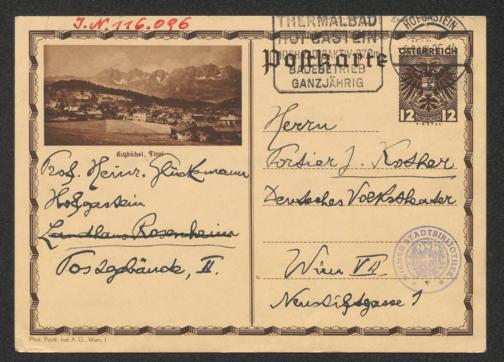 J.N. 116.096
THERMALBAD
HOFGASTEIN
BADEBETRIEB
GANZJÄHRIG
HOFGASTEIN
Postkarte
ÖSTERREICH
12 12
Kitzbühel, Tirol
Prof. Heinr. Glücksmann
Hofgastein
Landhaus Rosenheim
Postgebäude, II.
Herrn
Portier J. Kother
Deutsches Volkstheater
Wien VII
Neustiftgasse 1
WIENER STADTBIBLIOTHEK
Phot. Postk. Ind. A. G., Wien, I